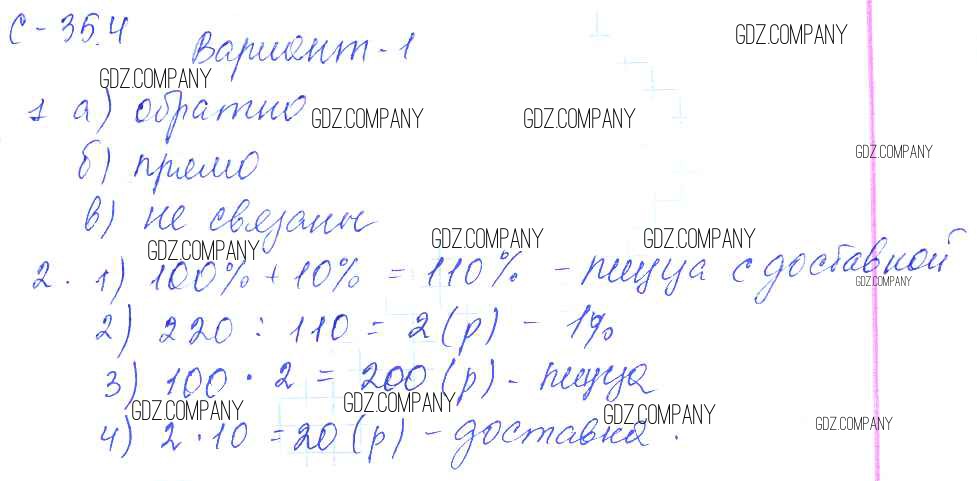 С - 35.4
Вариант - 1
GDZ.COMPANY
GDZ.COMPANY
1 а) обратно
GDZ.COMPANY
GDZ.COMPANY
б) прямо
GDZ.COMPANY
в) не связаны
GDZ.COMPANY
GDZ.COMPANY
GDZ.COMPANY
2. 1) 100% + 10% = 110% - пицца с доставкой
GDZ.COMPANY
2) 220 : 110 = 2 (р) - 1%
3) 100 · 2 = 200 (р) - пицца
GDZ.COMPANY
GDZ.COMPANY
GDZ.COMPANY
GDZ.COMPANY
4) 2 · 10 = 20 (р) - доставка.